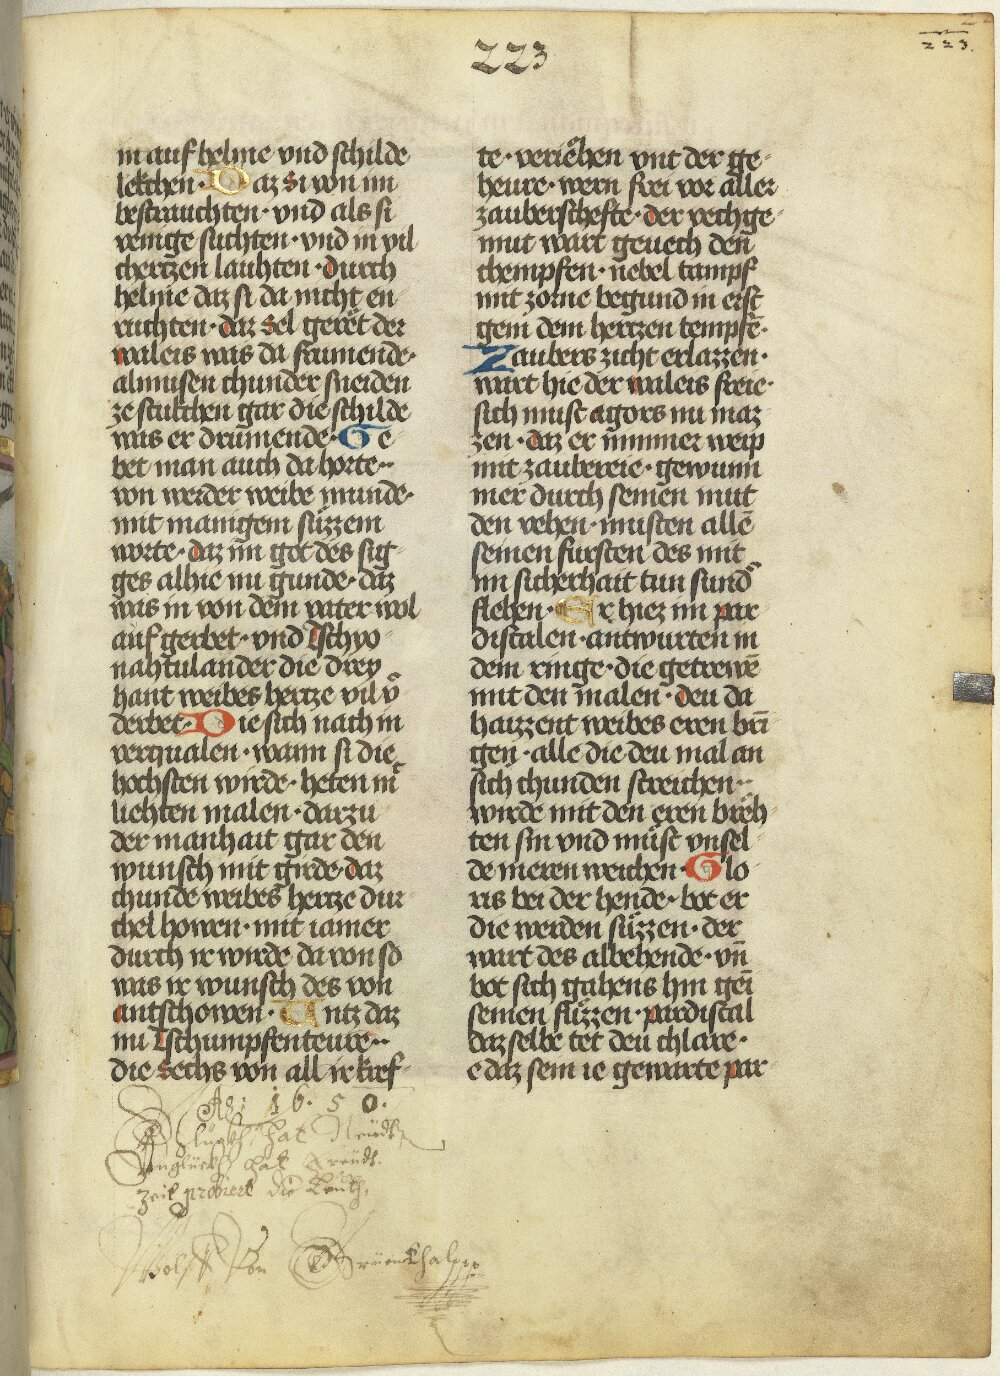 223
223.
in auf helme vnd schilde
lekchen · Daz si von im
bestrauchten · vnd als si
venige suchten · vnd in vil
chertzen lauhten · durch
helme daz si da nicht en
ruchten · daz sel geret der
waleis was da fraumende ·
almusen chunder sneiden
ze stukchen gar die schilde
was er drumende · Ge
bet man auch da horte ··
von werder weibe munde ·
mit manigem süzzem
worte · daz im got des sig
ges alhie nu gunde · daz
was in von dem vater wol
auf geerbet · vnd Tschyo
nahtulander die drey
hant weibes hertze vil v̄
derbet · Die sich nach in
verqualen · wann si die
hochsten wirde · heten in
liehten malen · darzu
der manhait gar den
wunsch mit girde · daz
chunde weibes hertze dur
chel howen · mit iamer
durch ir wirde da von so
was ir wunsch des von
antschowen · Untz daz
nu Tschumpfenteure ··
die sechs von all ir kref
te · veriehen vnt der ge
heure · wern frei vor aller
zauberschefte · der vechge
mut wart geuech den
chempfen · nebel tampf
mit zorne begund in ersc
gem dem hertzen tempfē ·
Zaubers zicht erlazzen ·
wart hie der waleis freie ·
sich must agors nu maz
zen · daz er nimmer weip
mit zaubereie · gewunn
mer durch seinen mut
den vehen · musten allē
seinen fursten des mit
im sicherhait tun sund
flehen · Er hiez im par
discalen · antwurten in
dem ringe · die getrewē
mit den malen · deu da
haizzent weibes eren bri
gen · alle die deu mal an
sich chunden streichen ··
wirde mit den eren breh
ten sin vnd must vnsel
de meren weichen · Glo
ris bei der hende · bot er
die werden süzzen · der
wart des albehende · vn̄
bot sich gahens hin gei
seinen füzzen · pardiscal
daz selbe tet deu chlare ·
e daz sein ie gewarte par
Aō: 1650.
Glückh hat Neidt
Unglückh hat Freudt
Zeit probiert die Leuth,
Wolf Von Grüenthall